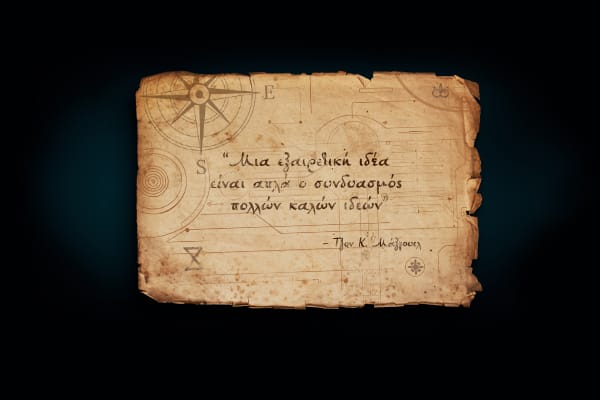 E
S
“Μια εξαιρετική ιδέα
είναι απλά ο συνδυασμός
πολλών καλών ιδεών”
- Τζον Κ. Μάξγουελ